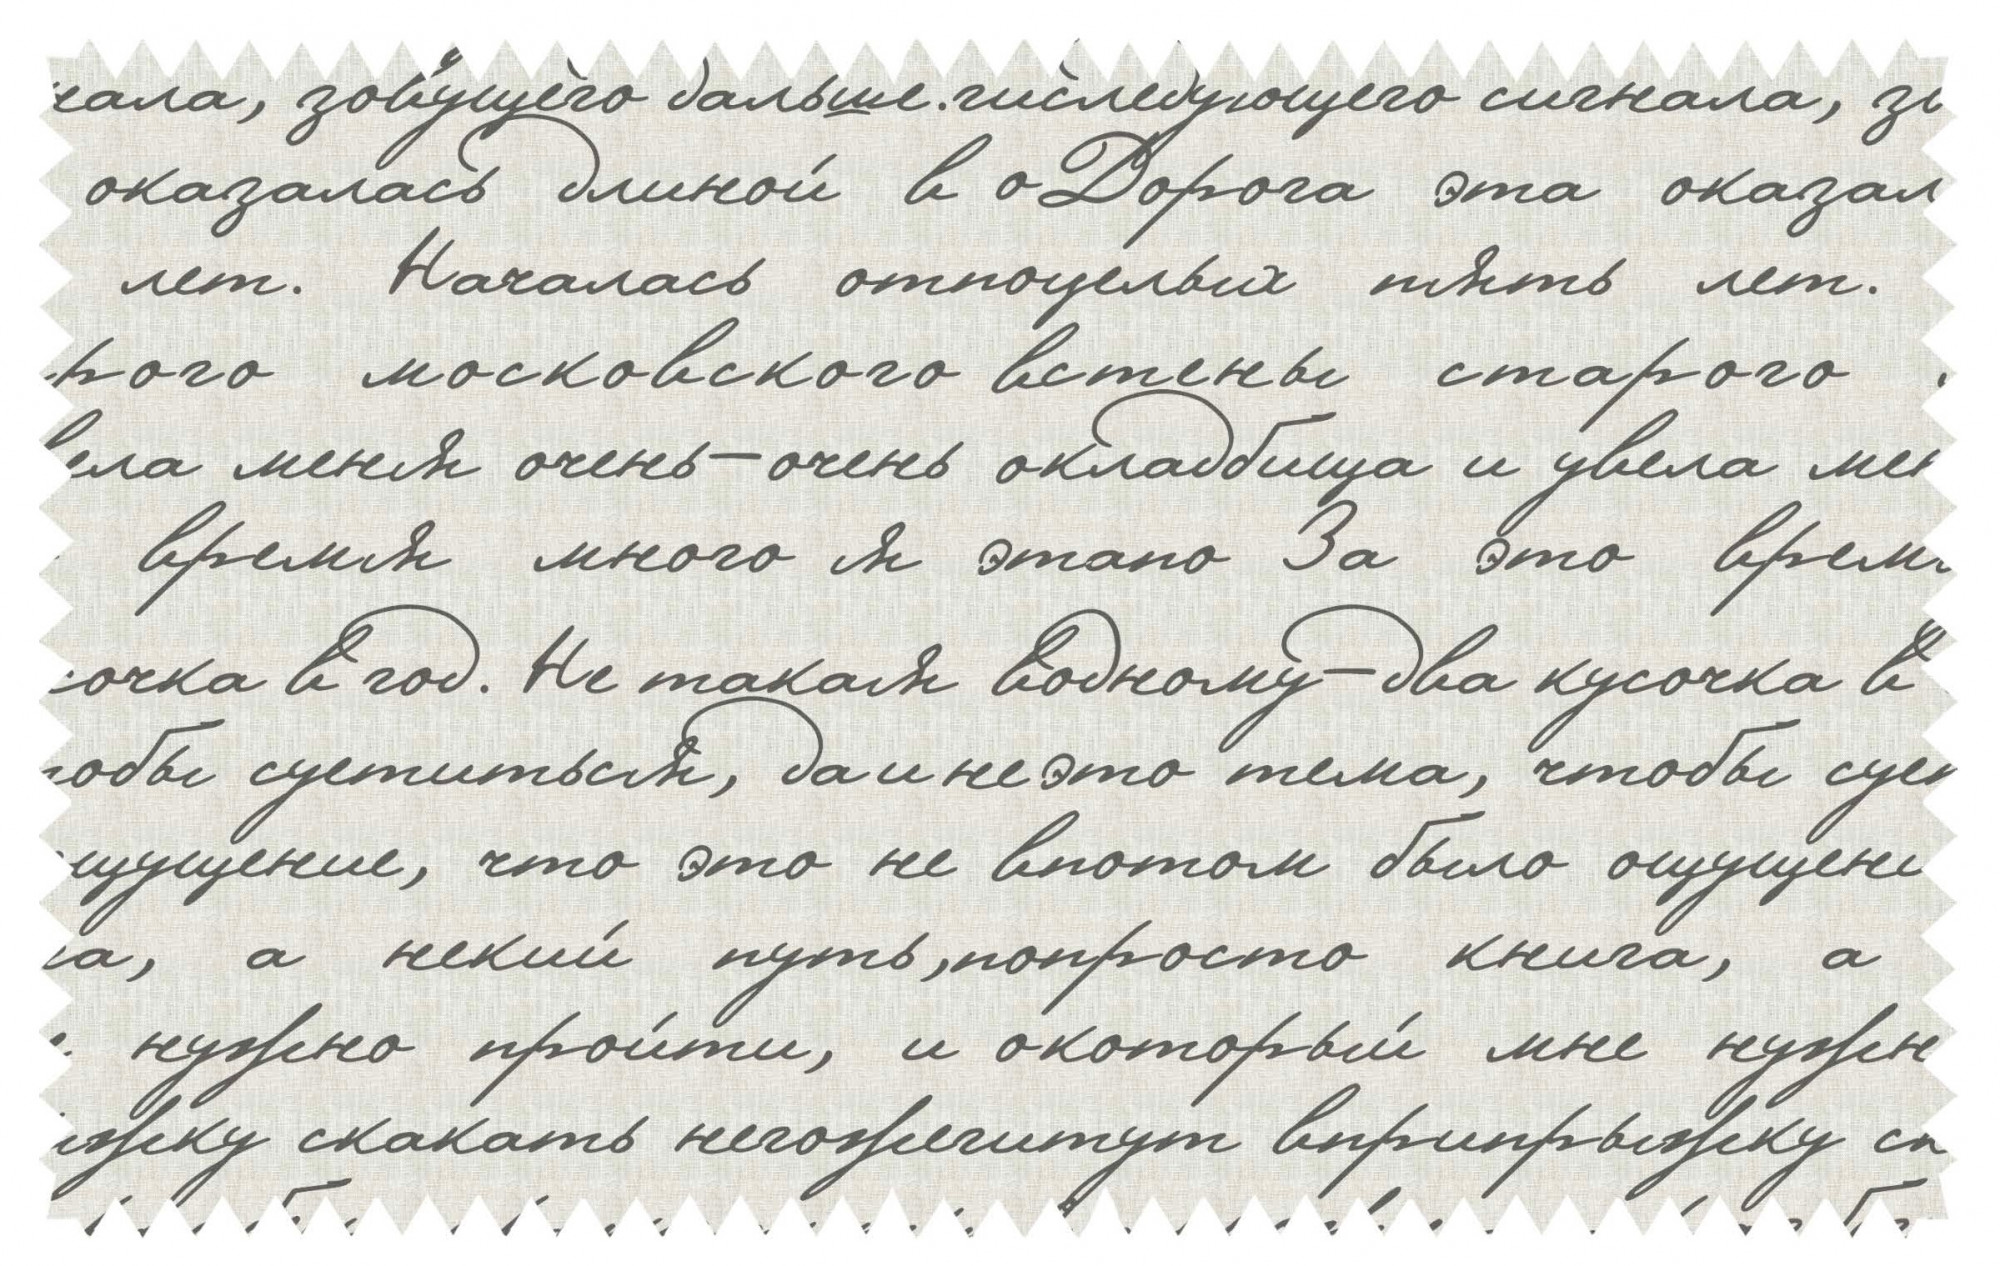 нала, зовущего дальше.гиследующего сигнала, зо
оказалась длиной в оДорога эта оказал
лет. Началась отпоцелых пять лет.
рого московского встены старого
вела меня очень-очень окладбища и увела мен
время много я этапо За это врем
очка в год. Не такая водному-два кусочка в
тобы суетиться, да и не это тема, чтобы сует
щущение, что это не впотом было ощущени
а, а некий путь,попросто книга, а
нужно пройти, и окоторый мне нужн
жку скакать негожегитут вприпрыжку ск